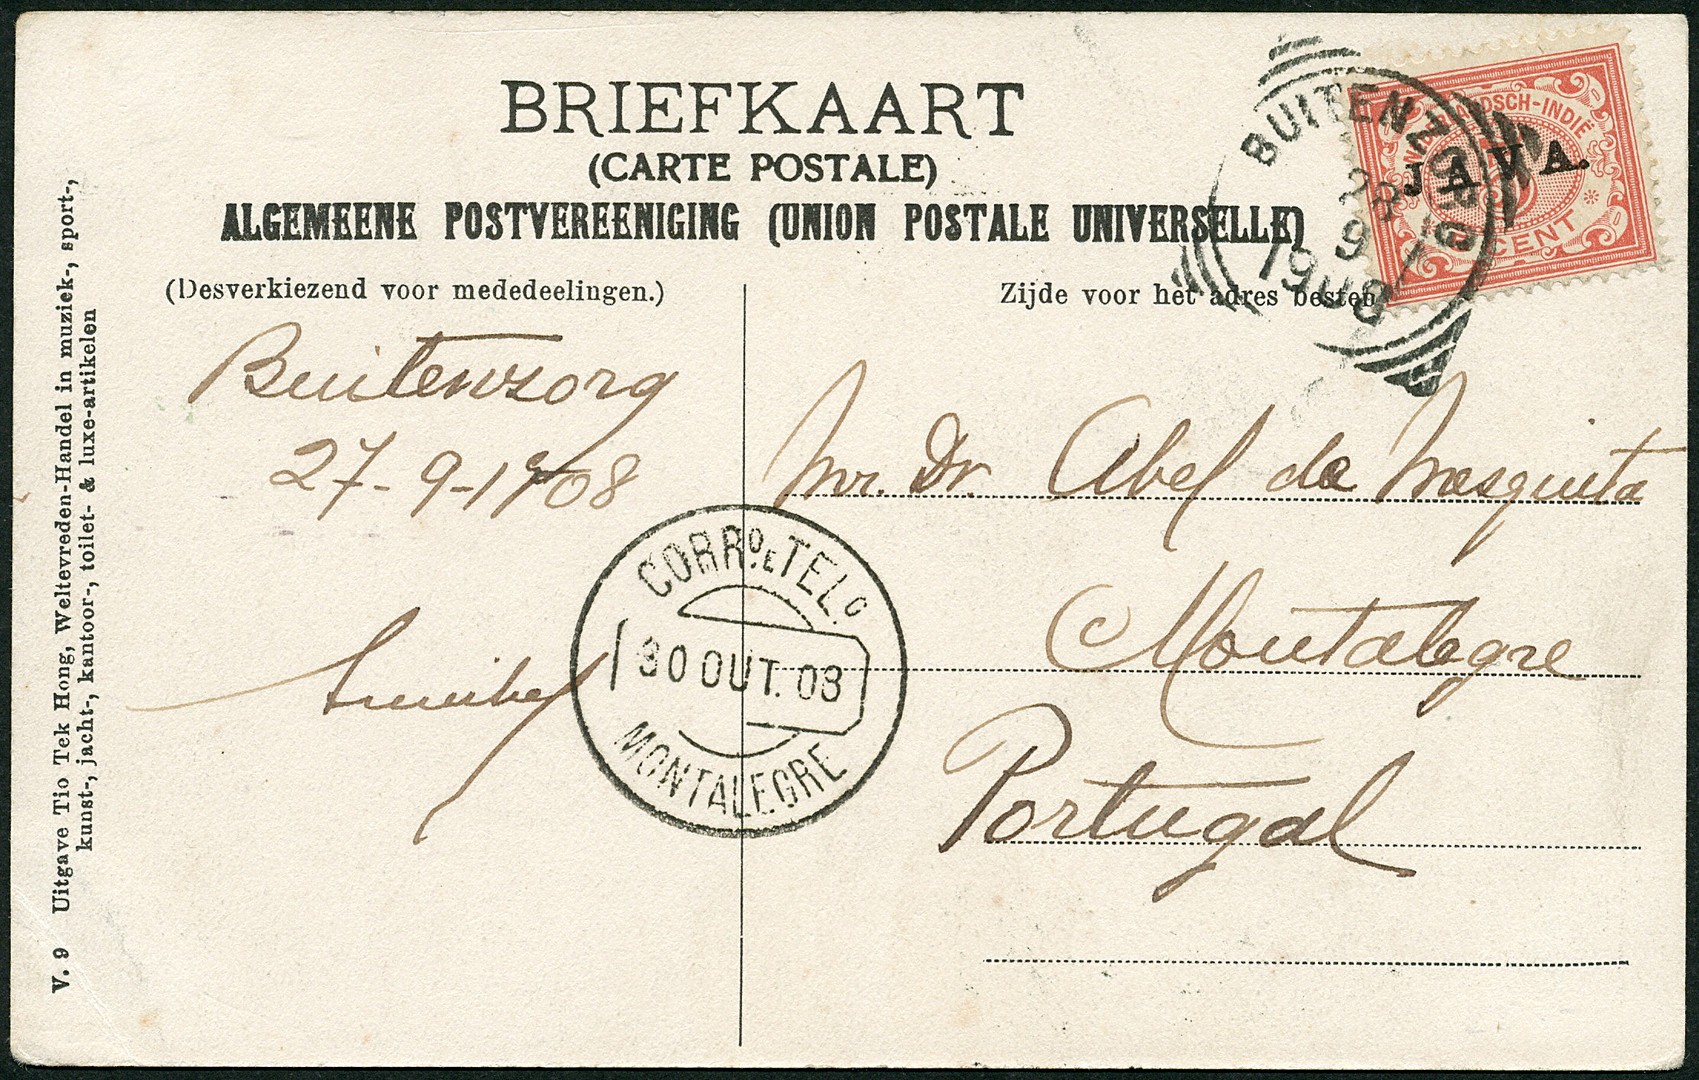 BRIEFKAART
(CARTE POSTALE)
ALGEMEENE POSTVEREENIGING (UNION POSTALE UNIVERSELLE)
(Desverkiezend voor mededeelingen.)
Zijde voor het adres besten
BUITENZORG
28
9
1908
NEDERLANDSCH-INDIË
JAVA.
5
CENT
Buitenzorg
27-9-1908
Mr. Dr. Abel de Mesquita
Montalegre
Portugal
CORRº E TELº
30 OUT. 08
MONTALEGRE
V. 9 Uitgave Tio Tek Hong, Weltevreden-Handel in muziek-, sport-,
kunst-, jacht-, kantoor-, toilet- & luxe-artikelen